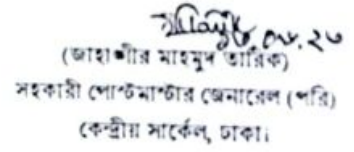 ০৮.২৩
(জাহাঙ্গীর মাহমুদ তারিক)
সহকারী পোস্টমাস্টার জেনারেল (পরি)
কেন্দ্রীয় সার্কেল, ঢাকা।